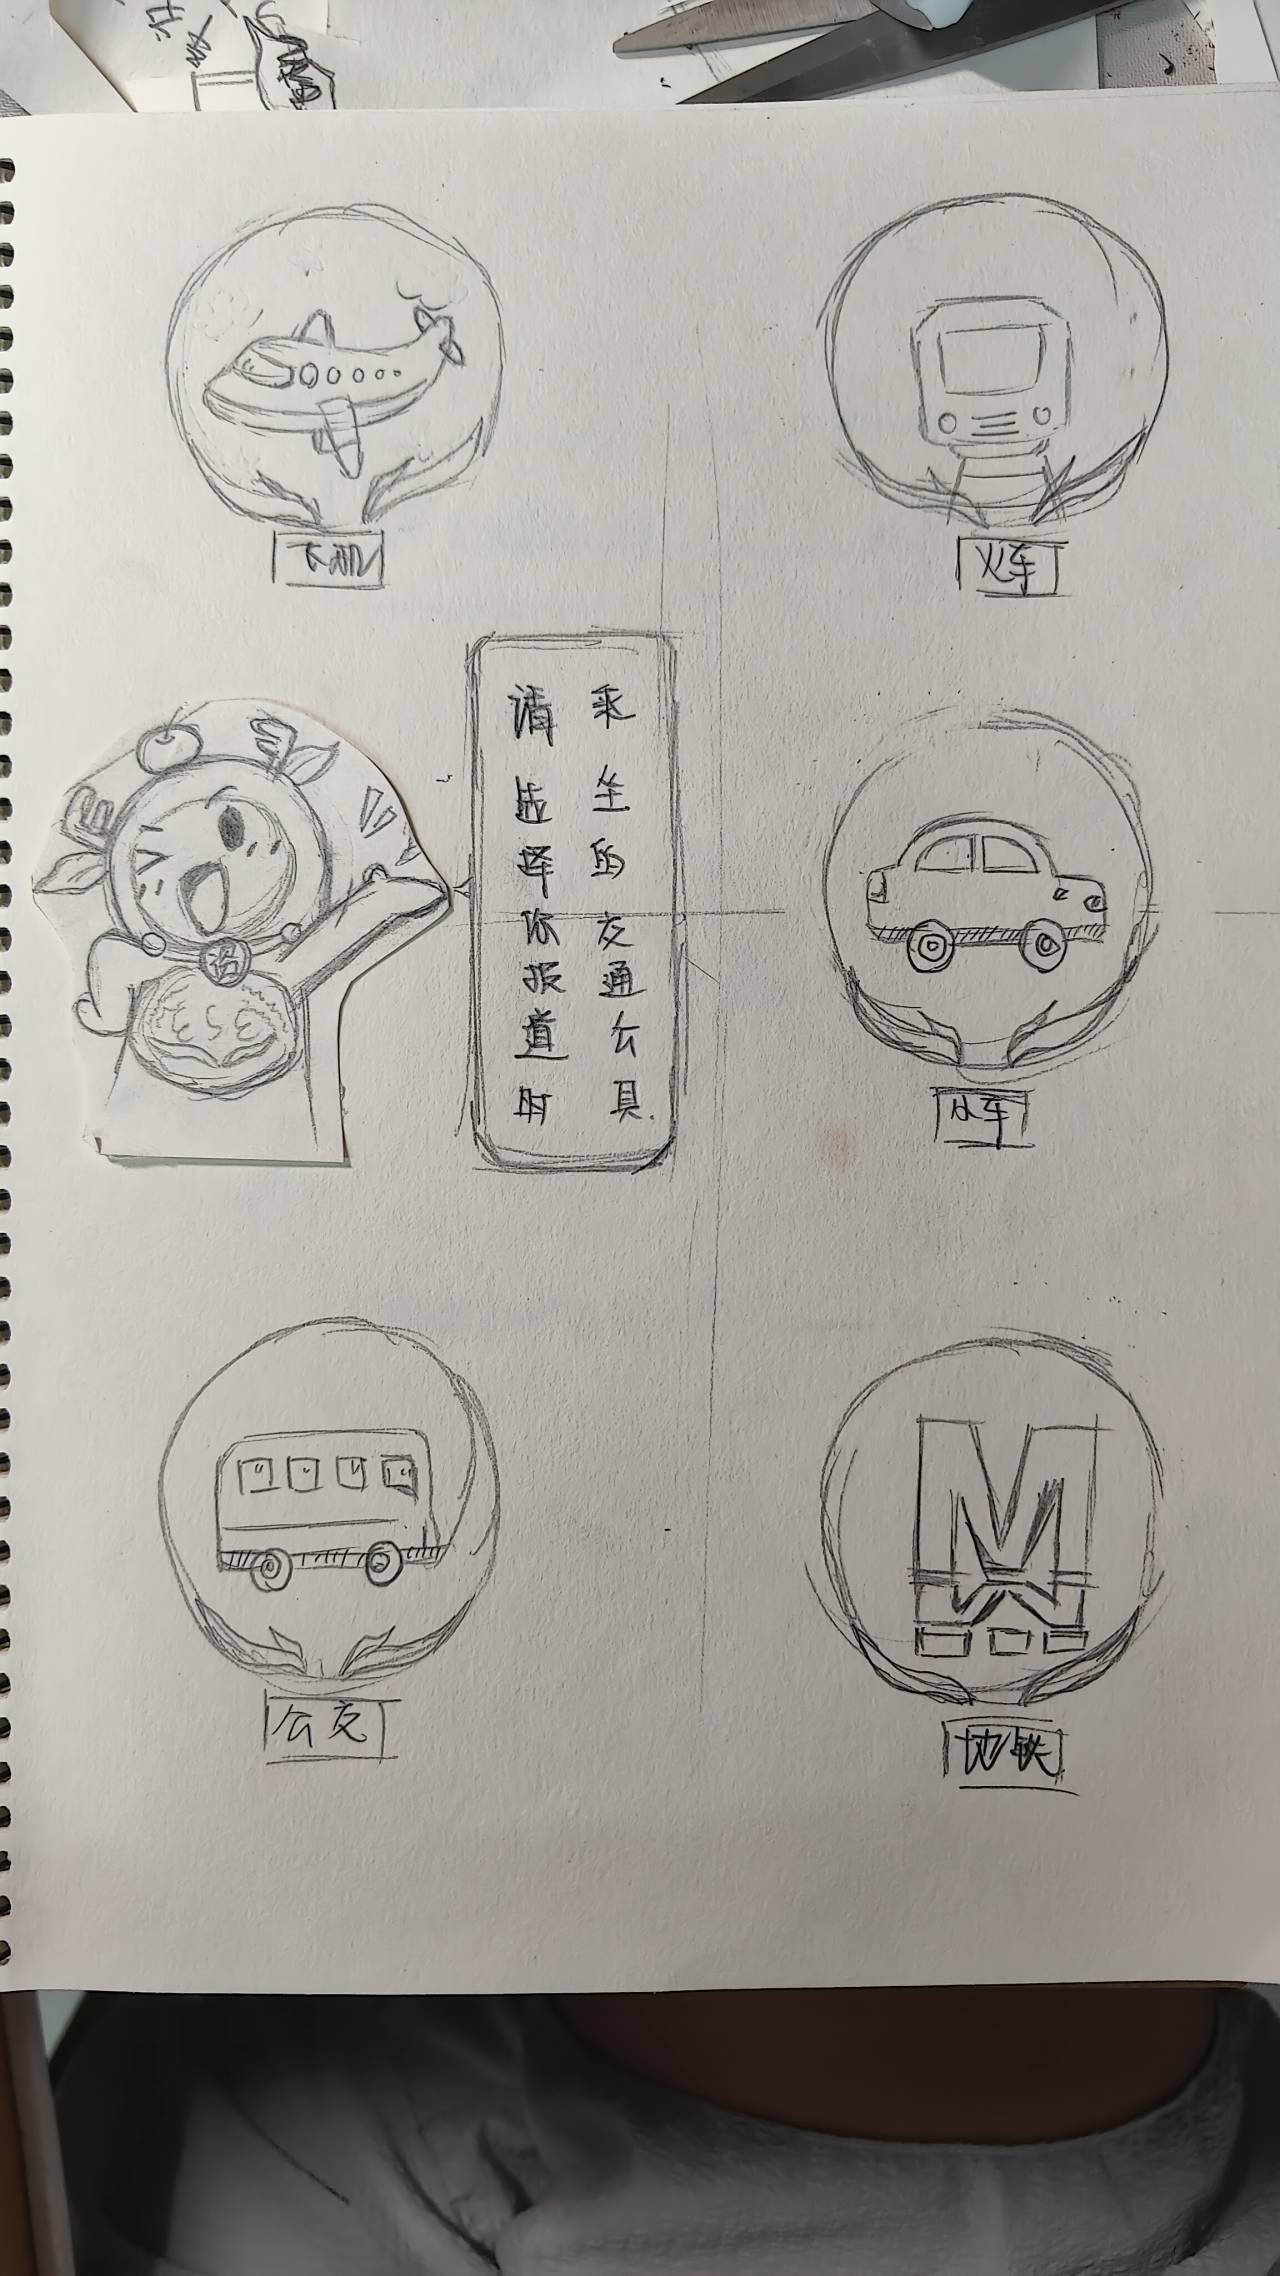 飞机
火车
请选择你报道时
乘坐的交通公具
小车
公交
地铁